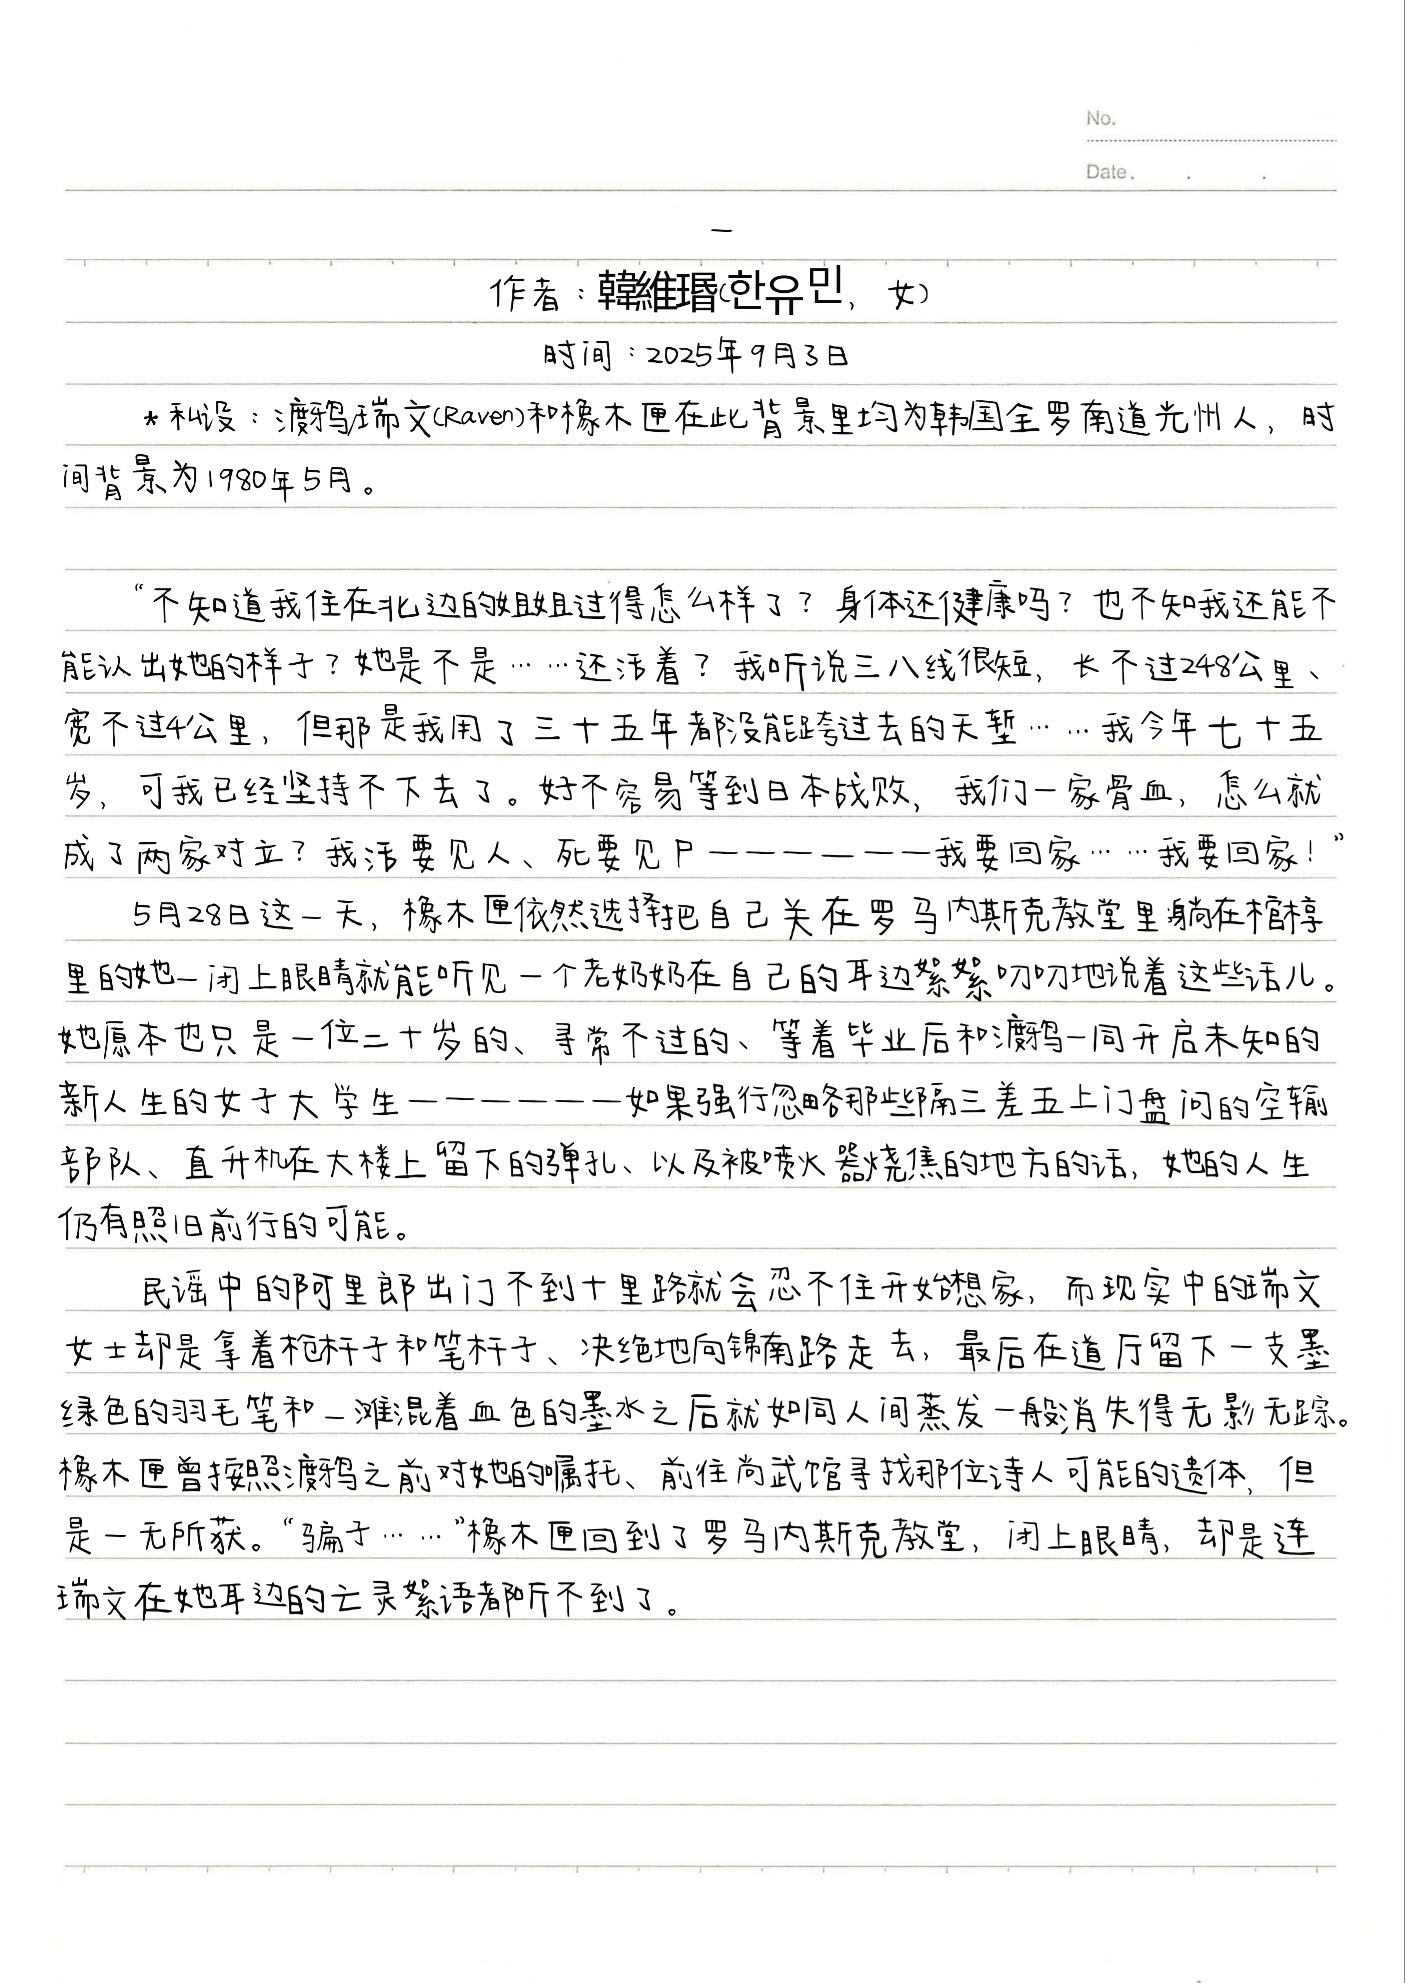 No.
Date. . .
一
作者：韓維瑉(한유민，女)
时间：2025年9月3日
*私设：渡鸦瑞文(Raven)和橡木匣在此背景里均为韩国全罗南道光州人，时
间背景为1980年5月。
“不知道我住在北边的姐姐过得怎么样了？身体还健康吗？也不知我还能不
能认出她的样子？她是不是……还活着？我听说三八线很短，长不过248公里、
宽不过4公里，但那是我用了三十五年都没能跨过去的天堑……我今年七十五
岁，可我已经坚持不下去了。好不容易等到日本战败，我们一家骨血，怎么就
成了两家对立？我活要见人、死要见尸——————我要回家……我要回家！”
5月28日这一天，橡木匣依然选择把自己关在罗马内斯克教堂里，躺在棺椁
里的她一闭上眼睛就能听见一个老奶奶在自己的耳边絮絮叨叨地说着这些话儿。
她原本也只是一位二十岁的、寻常不过的、等着毕业后和渡鸦一同开启未知的
新人生的女子大学生——————如果强行忽略那些隔三差五上门盘问的空输
部队、直升机在大楼上留下的弹孔、以及被喷火器烧焦的地方的话，她的人生
仍有照旧前行的可能。
民谣中的阿里郎出门不到十里路就会忍不住开始想家，而现实中的瑞文
女士却是拿着枪杆子和笔杆子、决绝地向锦南路走去，最后在道厅留下一支墨
绿色的羽毛笔和一滩混着血色的墨水之后就如同人间蒸发一般消失得无影无踪。
橡木匣曾按照渡鸦之前对她的嘱托、前往尚武馆寻找那位诗人可能的遗体，但
是一无所获。“骗子……”橡木匣回到了罗马内斯克教堂，闭上眼睛，却是连
瑞文在她耳边的亡灵絮语都听不到了。